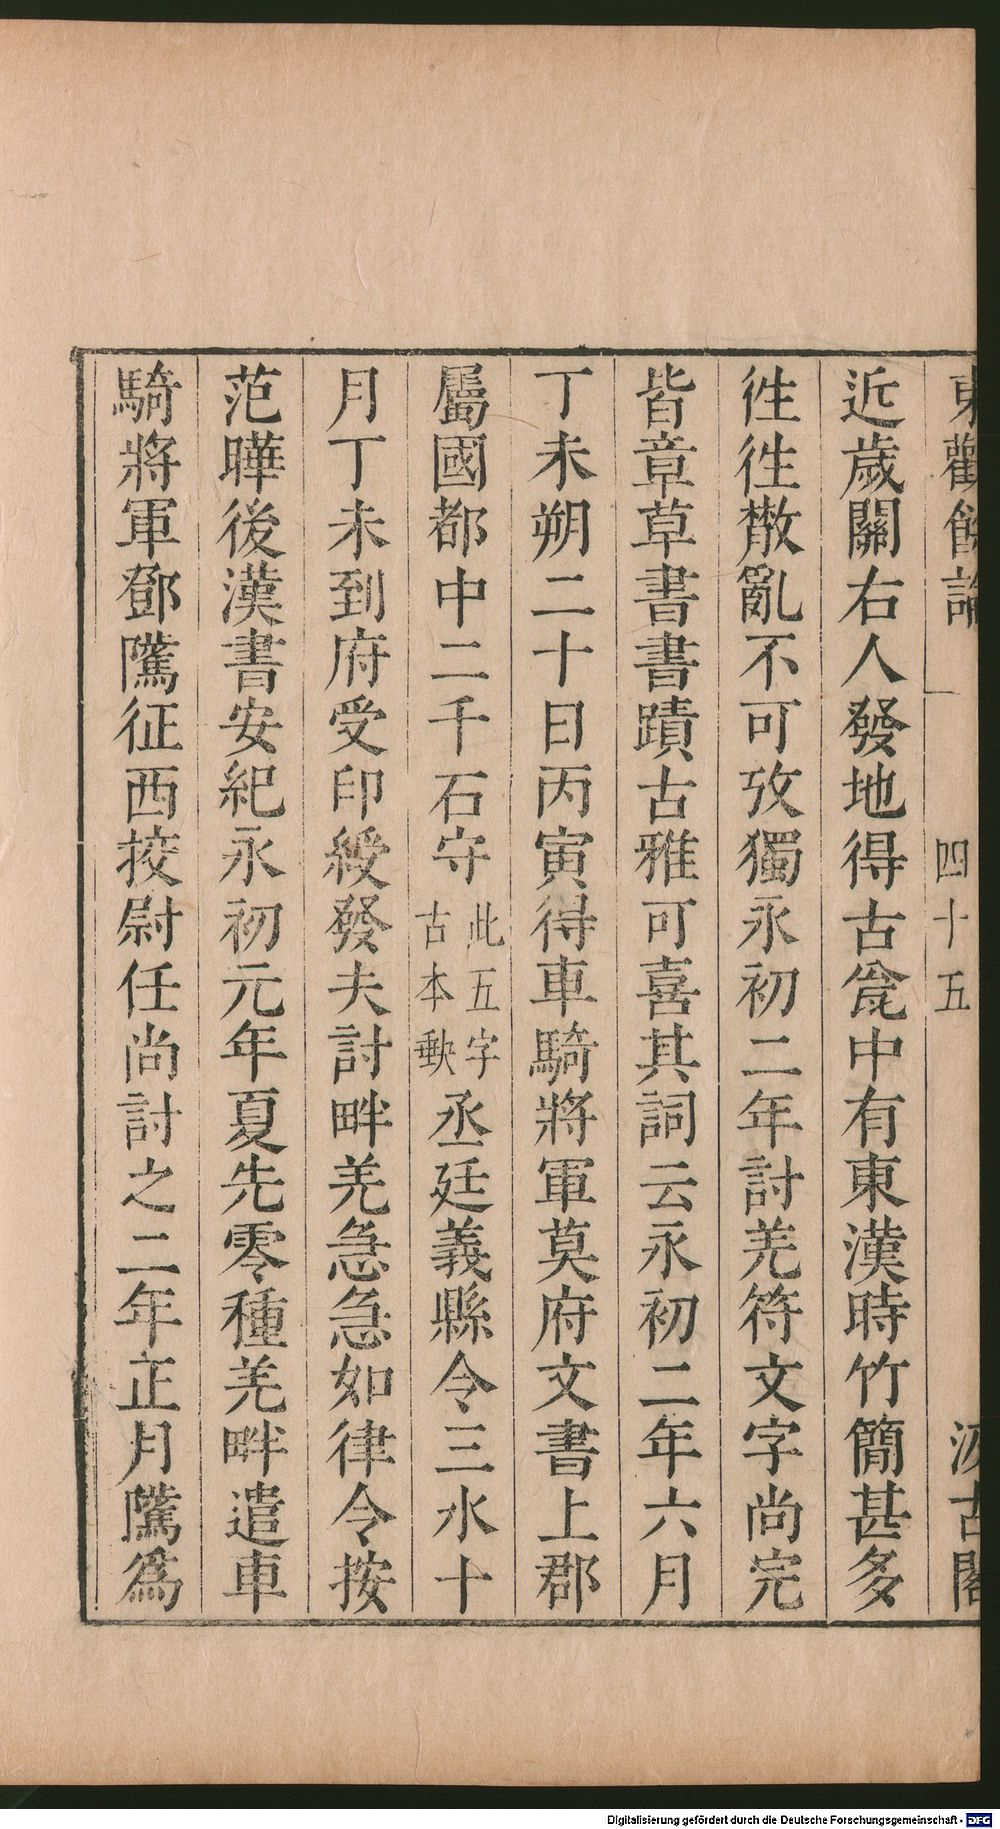 東觀餘論 四十五 汲古閣
近歲關右人發地得古瓮中有東漢時竹簡甚多
徃徃散亂不可攷獨永初二年討羌符文字尚完
皆章草書書蹟古雅可喜其詞云永初二年六月
丁未朔二十日丙寅得車騎將軍莫府文書上郡
屬國都中二千石守此五字古本軼丞廷義縣令三水十
月丁未到府受印綬發夫討畔羌急急如律令按
范曄後漢書安紀永初元年夏先零種羌畔遣車
騎將軍鄧騭征西挍尉任尚討之二年正月騭為
Digitalisierung gefördert durch die Deutsche Forschungsgemeinschaft - DFG